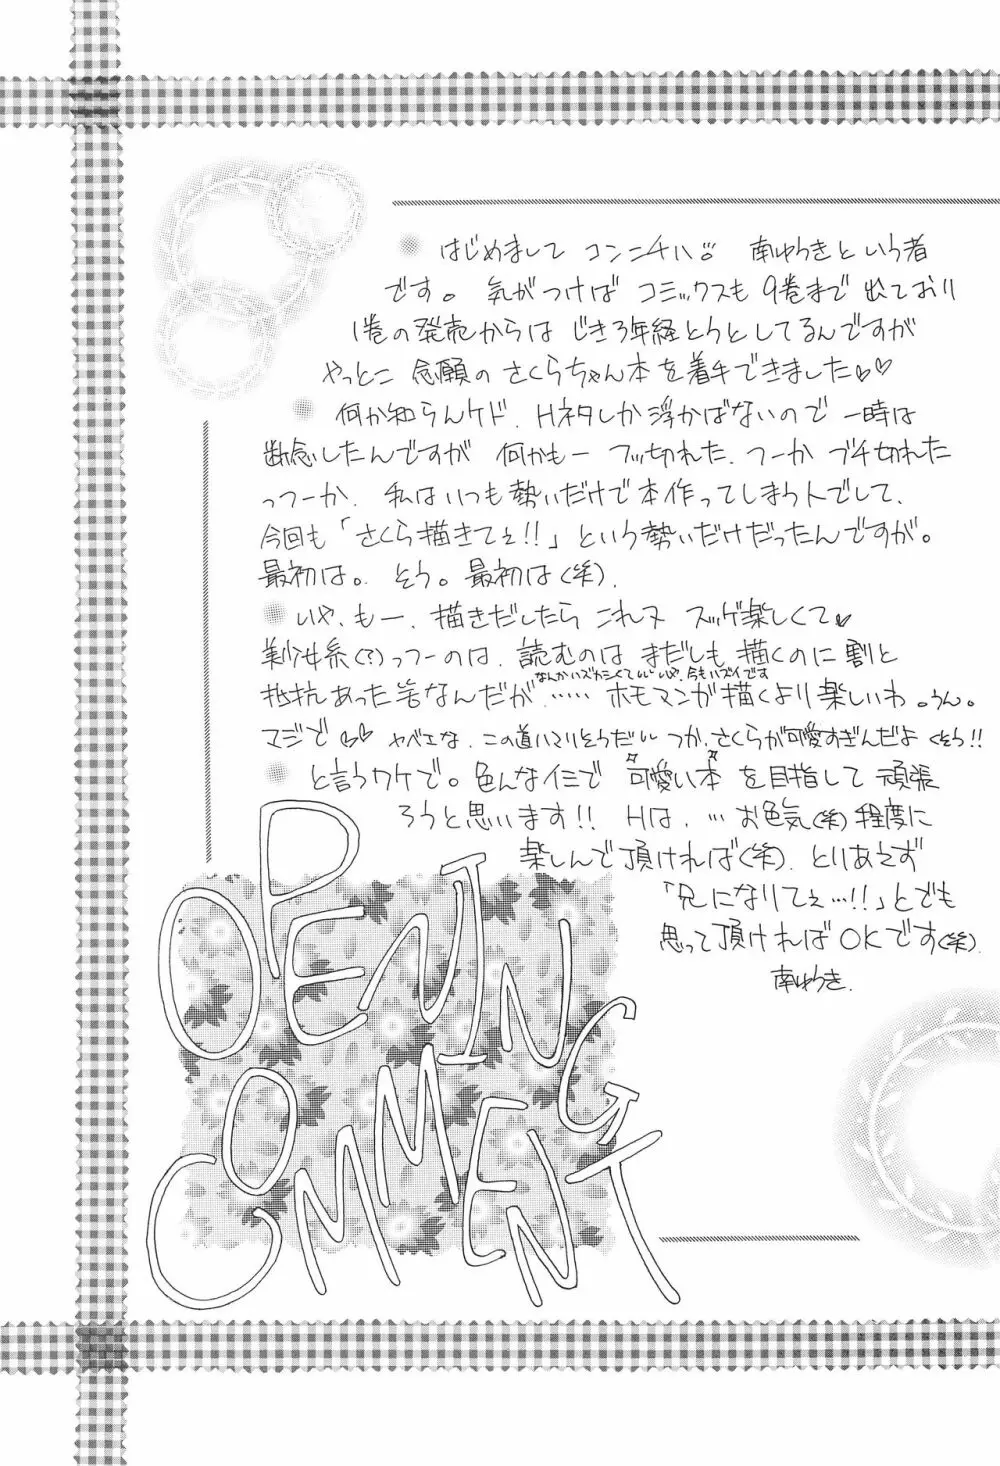 はじめまして コンニチハ。 南ゆうきという者
です。 気がつけば コミックスも 9巻まで 出ており
1巻の発売からは じき3年経とうとしてるんですが
やっとこ 念願の さくらちゃん本 を着手できました♡♡
何か知らんケド、Hネタしか浮かばないので 一時は
断念したんですが 何かもー フッ切れた、つーか ブチ切れた
っつーか、 私はいつも勢いだけで本作ってしまう人でして、
今回も「さくら描きてぇ!!」という勢いだけだったんですが。
最初は。 そう。最初は(笑).
いや、もー、描きだしたら これヌ スッゲ楽しくて♡
美少女系(?)っつーのは、読むのは まだしも 描くのに 割と
なんかハズカシくて いや、今もハズイです
抵抗あった筈なんだが、…… ホモマンガ描くより楽しいわ。うん。
マジで♡♡ ヤベェな、この道ハマりそうだい つか、さくらが可愛すぎんだよ くそう!!
と言うワケで。色んなイミで 可愛い本 を目指して 頑張
ろうと思います!! Hは、…お色気(笑)程度に
楽しんで頂ければ(笑). とりあえず
「兄になりてぇ…!!」とでも
思って頂ければOKです(笑).
南ゆうき.
OPENING
COMMENT